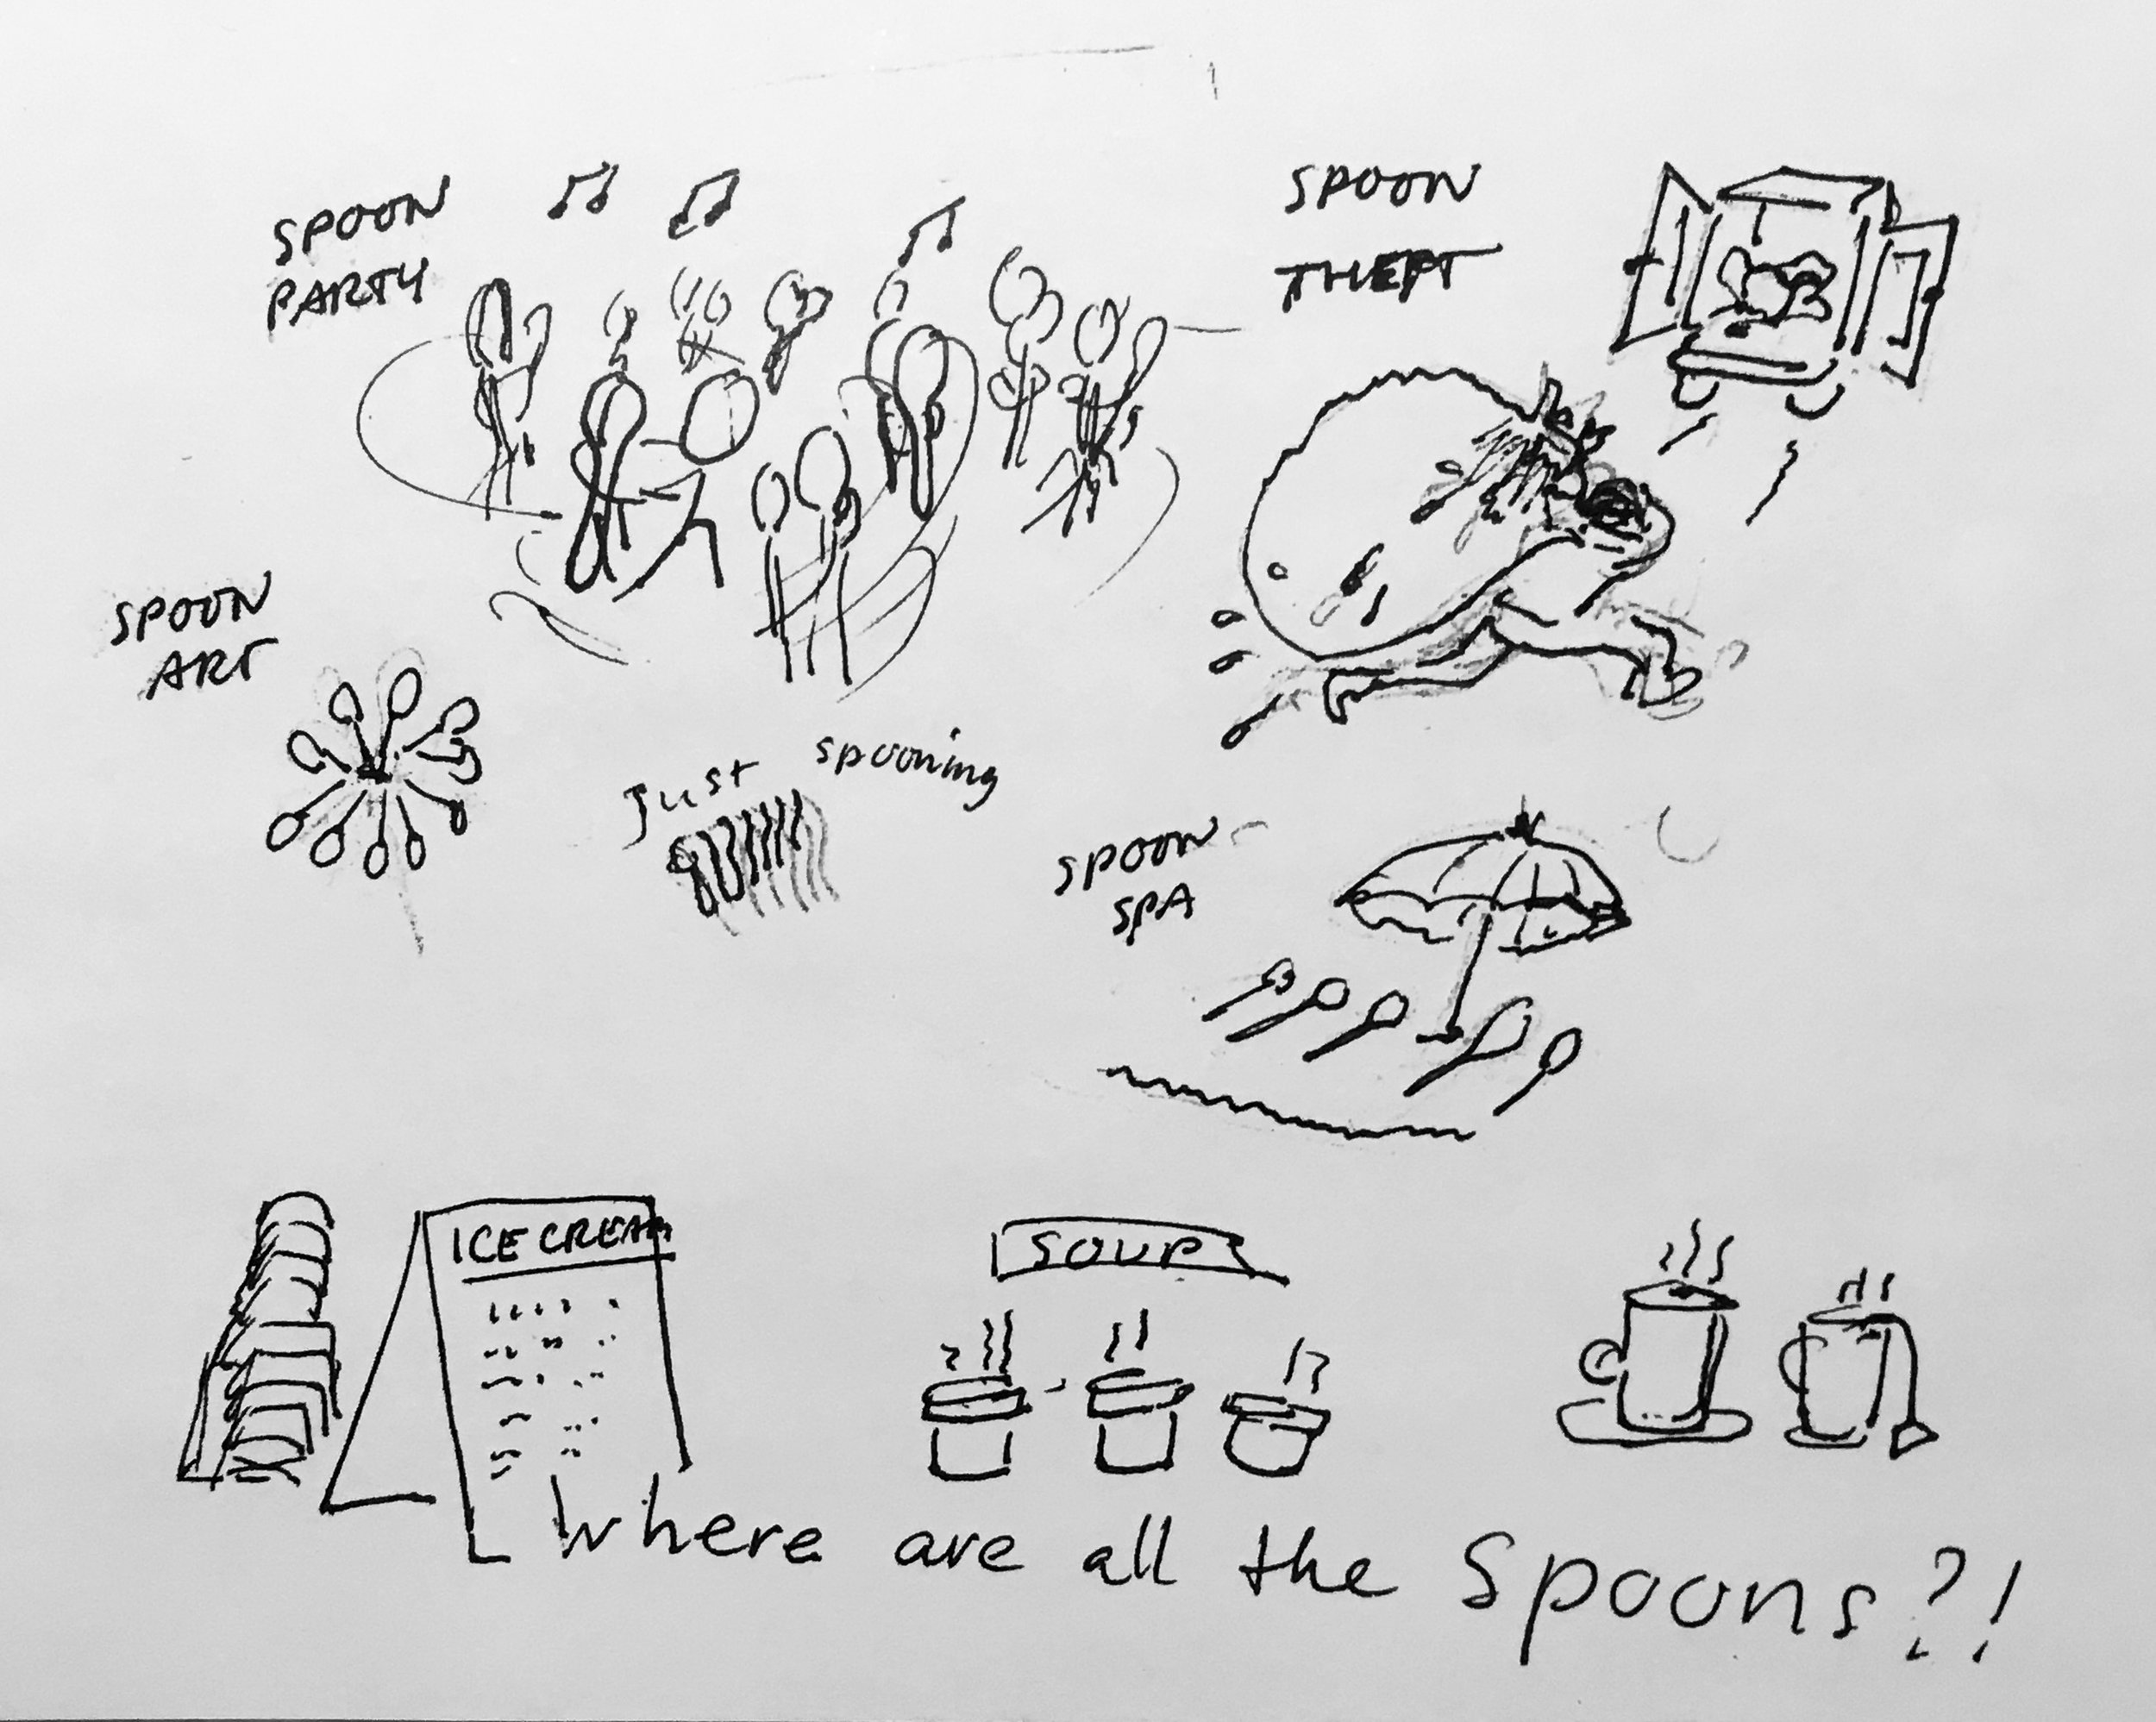 SPOON
PARTY
SPOON
THEFT
SPOON
ART
just spooning
SPOON
SPA
ICE CREAM
SOUP
Where are all the Spoons?!